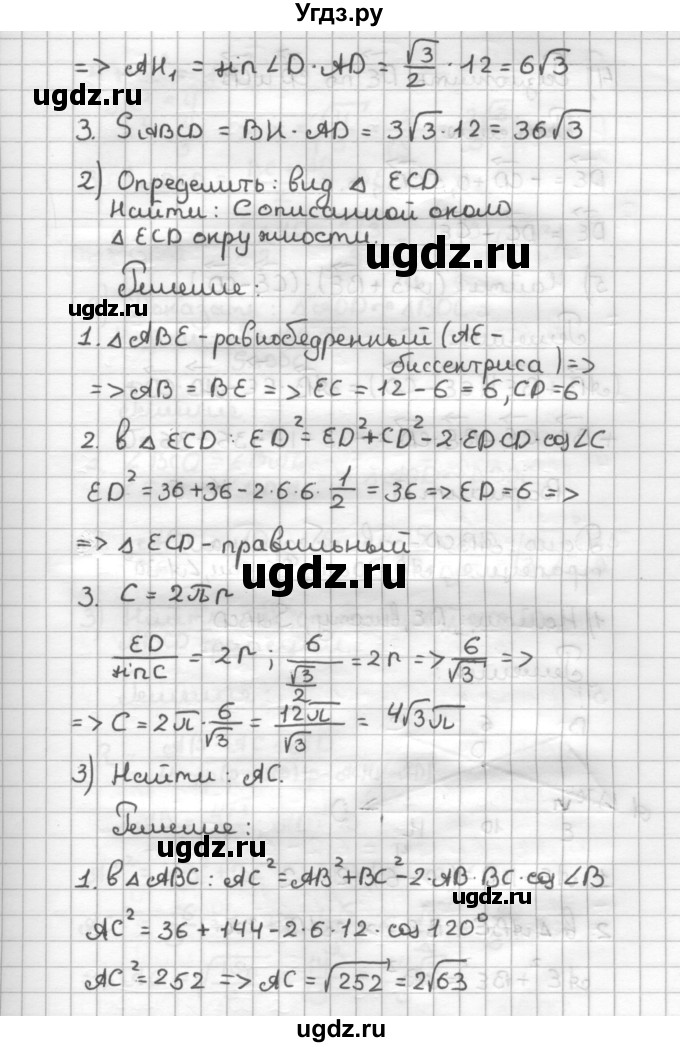 Угдз.ру
=> AH₁ = sin∠D·AD = √3/2 · 12 = 6√3
ugdz.ru
3. SABCD = BH·AD = 3√3·12 = 36√3
2) Определить: вид △ ECD
Найти: C описанной около
△ ECD окружности.
ugdz.ru
Решение:
ugdz.ru
1. △ABE - равнобедренный (AE -
биссектриса) =>
=> AB = BE => EC = 12 - 6 = 6, CD = 6
2. в △ ECD: ED² = ED² + CD² - 2·ED CD·cos∠C
ED² = 36 + 36 - 2·6·6·1/2 = 36 => ED = 6 =>
=> △ ECD - правильный
ugdz.ru
3. C = 2πr
ED/sinC = 2r ; 6/(√3/2) = 2r => 6/√3 =>
=> C = 2π·6/√3 = 12π/√3 = 4√3π
3) Найти: AC.
Решение:
ugdz.ru
ugdz.ru
1. в △ABC: AC² = AB² + BC² - 2·AB·BC·cos∠B
AC² = 36 + 144 - 2·6·12·cos120°
ugdz.ru
AC² = 252 => AC = √252 = 2√63
ugdz.ru